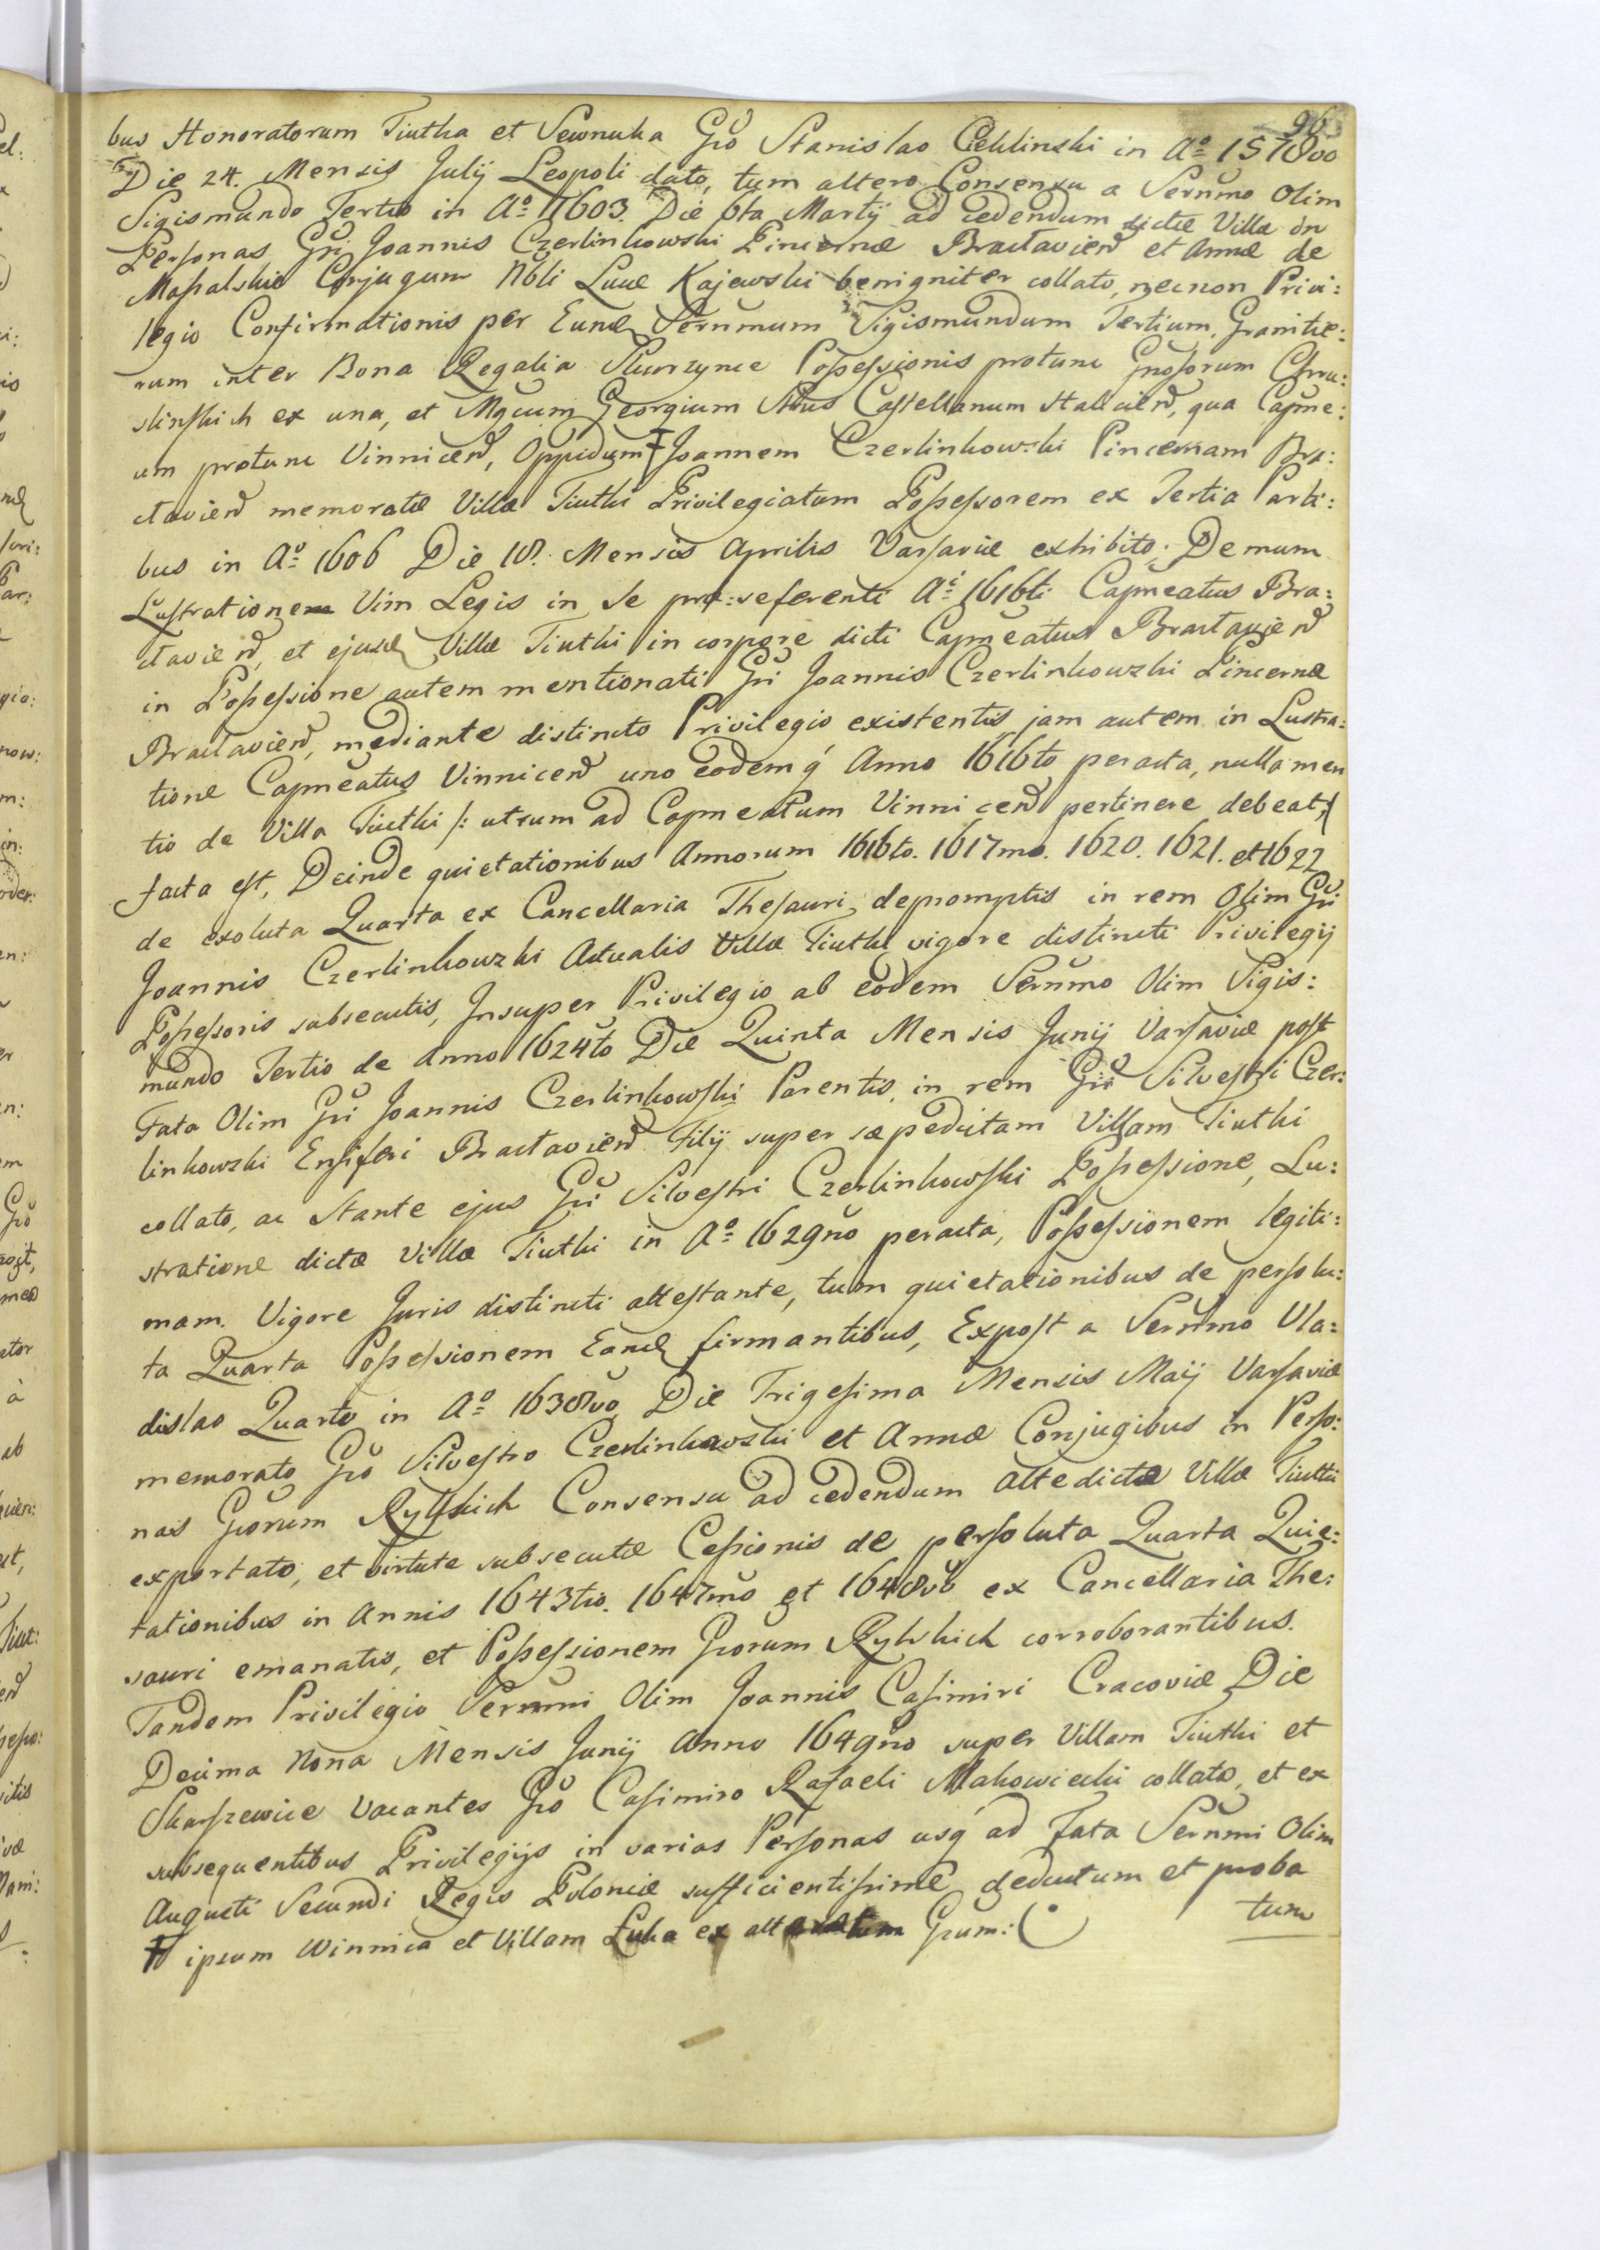 96
bus Honoratorum Tiutka et Sewruka Gſo Stanislao Cieklinski in Aº 1578vo
Die 24. Mensis Julij Leopoli dato, tum altero Consensu a Sernmo Olim
Sigismundo Tertio in Aº 1603. Die 6ta Martij ad cedendum dictæ Villæ in
Personas Gſi Joannis Czerlinkowski Pincernæ Braclavien et Annæ de
Masalskie Conjugum Nbli Lucæ Kajewski benigniter collato, necnon Privi:
legio Confirmationis per Eund Sernmum Sigismundum Tertium, Granitie:
rum inter Bona Regalia Skurzynce Possessionis protunc Gnosorum Chru:
slinskich ex una, et Mgcum Georgium Strus Castellanum Halicien, qua Capne:
um protunc Vinnicen, Oppidum Ŧ Joannem Czerlinkowski Pincernam Bra:
clavien memoratæ Villæ Tiutki Privilegiatum Possessorem ex Tertia Parti:
bus in Aº 1606 Die 18. Mensis Aprilis Varsaviæ exhibito; Demum
Lustratione Vim Legis in se præ:seferenti Aⁱ 1616ti Capneatus Bra:
clavien, et ejusd Villæ Tiutki in corpore dicti Capneatus Braclavien
in Possessione autem mentionati Gſi Joannis Czerlinkowzki Pincernæ
Braclavien, mediante distincto Privilegio existentis, jam autem in Lustra:
tione Capneatus Vinnicen uno eodemq Anno 1616to peracta, nulla men
tio de Villa Tiutki /: utrum ad Capneatum Vinnicen pertinere debeat:/
facta est, Deinde quietationibus Annorum 1616to. 1617mo. 1620. 1621. et 1622
de exoluta Quarta ex Cancellaria Thesauri depromptis in rem Olim Gſi
Joannis Czerlinkowzki Actualis Villæ Tiutki vigore distincti Privilegij
Possessoris subsecutis, Insuper Privilegio ab eodem Sernmo Olim Sigis:
mundo Tertio de Anno 1624to Die Quinta Mensis Junij Varsaviæ post
Fata Olim Gſi Joannis Czerlinkowski Parentis, in rem Gſi Silvestri Czer:
linkowzki Ensiferi Braclavien Filij super sæpedictam Villam Tiutki
collato, ac stante ejus Gſi Silvestri Czerlinkowski Possessione, Lu:
stratione dictæ Villæ Tiutki in Aº 1629no peracta, Possessionem legiti:
mam. Vigore Juris distincti attestante, tum quietationibus de persolu:
ta Quarta Possessionem Eand firmantibus, Expost a Sernmo Vla:
dislao Quarto in Aº 1638vo Die Trigesima Mensis Maij Varsaviæ
memorato Gſo Silvestro Czerlinkowski et Annæ Conjugibus in Perso:
nas Gſorum Rylskich Consensu ad cedendum attedictæ Villæ Tiutki
exportato, et virtute subsecutæ Cessionis de persoluta Quarta Quie:
tationibus in Annis 1643tio. 1647mo et 1648vo ex Cancellaria The:
sauri emanatis, et Possessionem Gſorum Rylskich corroborantibus.
Tandem Privilegio Sernmi Olim Joannis Casimiri Cracoviæ Die
Decima Nona Mensis Junij Anno 1649no super Villam Tiutki et
Skarszewice Vacantes Gſo Casimiro Rafaeli Makowiecki collato, et ex
subsequentibus Privilegijs in varias Personas usq ad Fata Sernmi Olim
Augusti Secundi Regis Poloniæ sufficientissime deductum et proba
tum
Ŧ ipsum Winnica et Villam Luka ex altera Gſum: